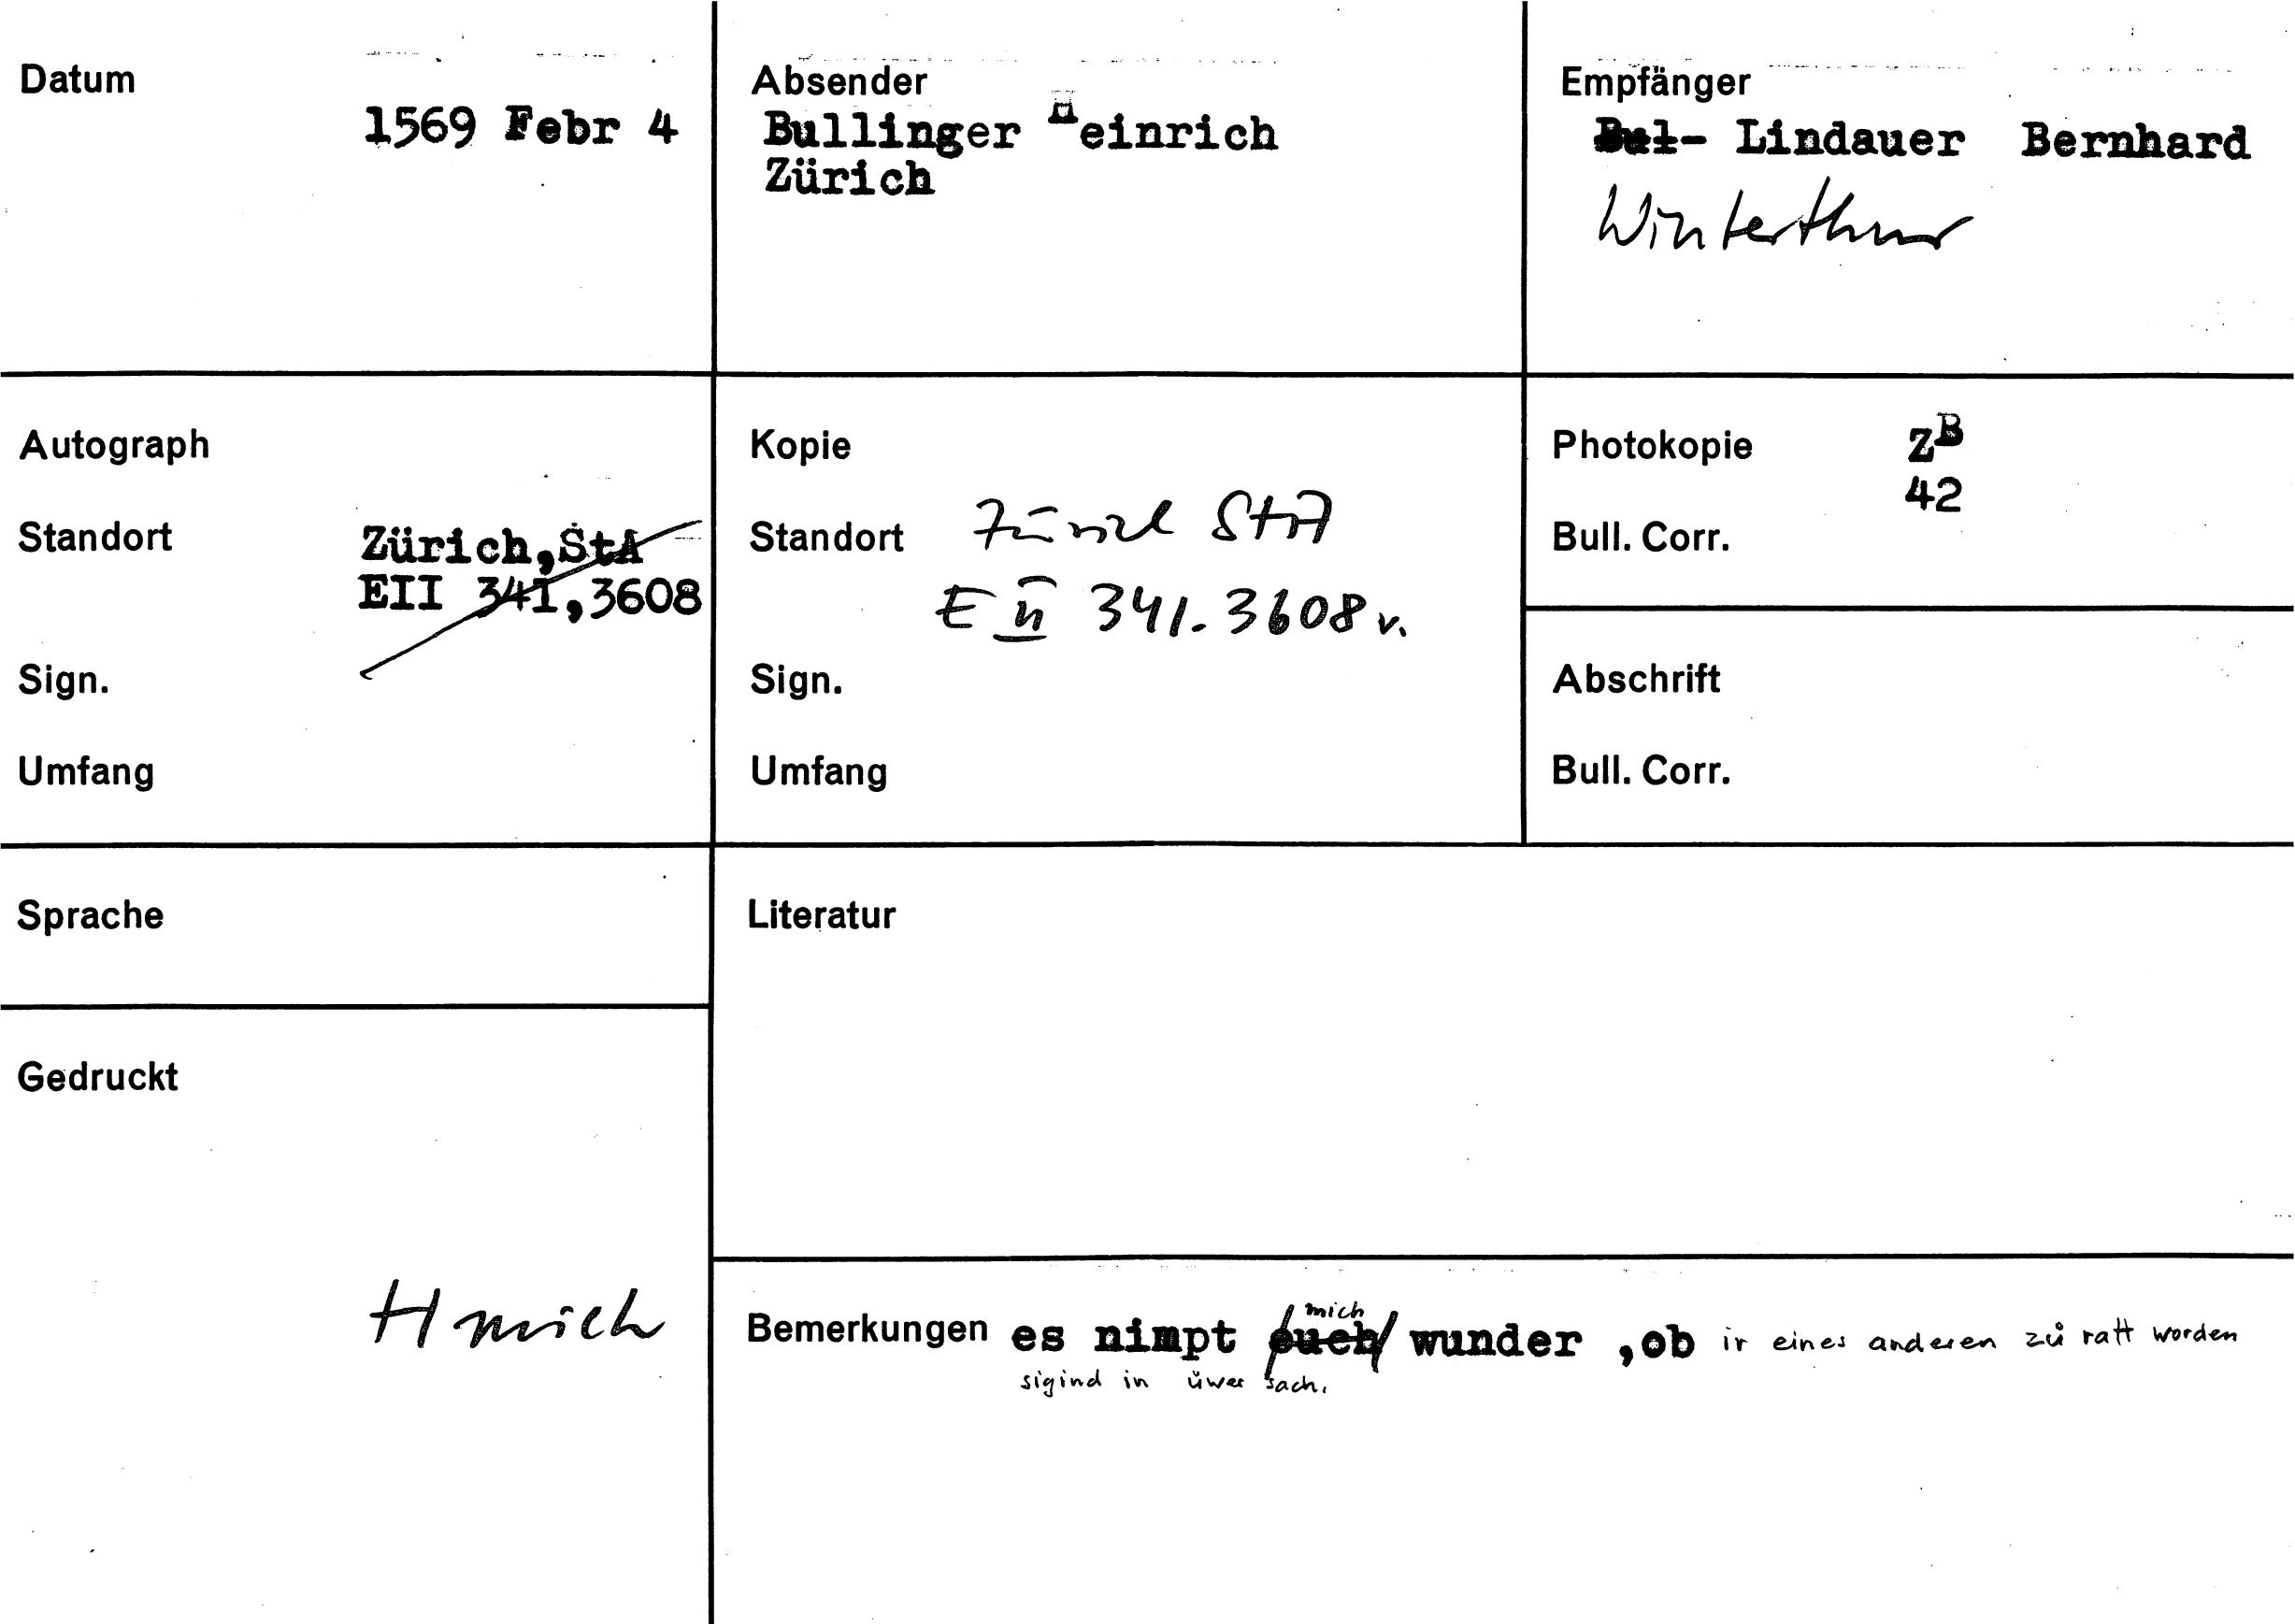 Datum
1569 Febr 4
Absender
Bullinger Heinrich
Zürich
Empfänger
Bul- Lindauer Bernhard
Winterthur
Autograph
Standort
Zürich,StA
EII 341,3608
Sign.
Umfang
Kopie
Standort Zürich StA
E II 341.3608v.
Sign.
Umfang
Photokopie ZB
42
Bull. Corr.
Abschrift
Bull. Corr.
Sprache
Literatur
Gedruckt
Bemerkungen es nimpt euch mich wunder ,ob ir eines anderen zů ratt worden
sigind in üwer sach.